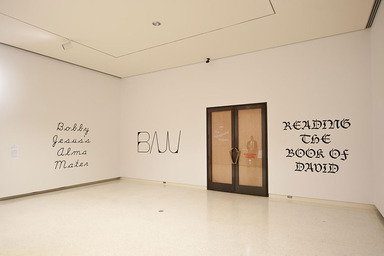 Bobby
Jesuss
Alma
Mater
B/\/\/
READING
THE
BOOK OF
DAVID